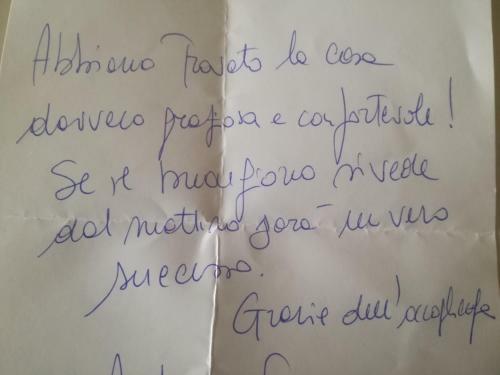 Abbiamo Trovato la casa
davvero graziosa e confortevole!
Se il buongiorno si vede
dal mattino sarà un vero
successo.
Grazie dell'accoglienza